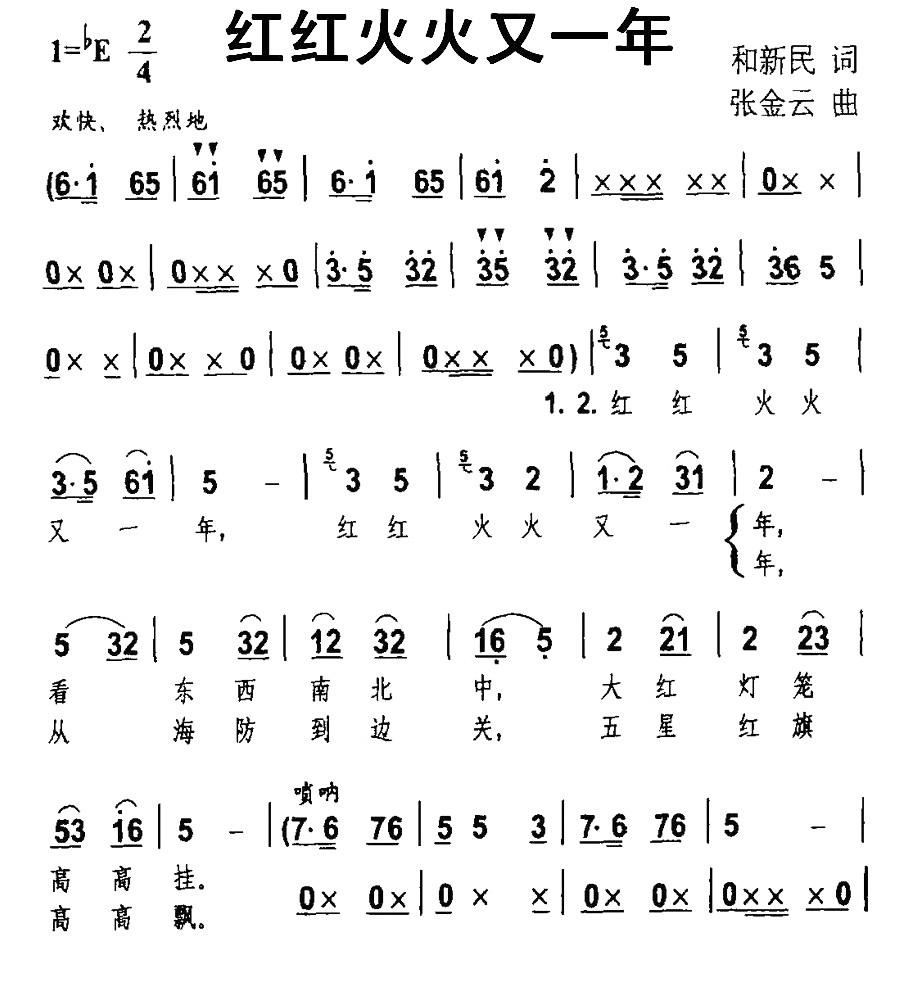 红红火火又一年
1=♭E 2/4
和新民 词
张金云 曲
欢快、热烈地
(6·1̇ 65 | 61̇ 65 | 6·1̇ 65 | 61̇ 2̇ | ××× ×× | 0× × |
0× 0× | 0×× ×0 | 3̇·5̇ 3̇2̇ | 3̇5̇ 3̇2̇ | 3̇·5̇ 3̇2̇ | 3̇6 5 |
0× × | 0× ×0 | 0× 0× | 0×× ×0) | 5 3 5 | 5 3 5 |
1. 2. 红 红 火 火
3·5 61̇ | 5 – | 5 3 5 | 5 3 2 | 1·2 31 | 2 – |
又 一 年, 红 红 火 火 又 一 { 年,
年,
5 32 | 5 32 | 12 32 | 16̣ 5̣ | 2 21 | 2 23 |
看 东 西 南 北 中, 大 红 灯 笼
从 海 防 到 边 关, 五 星 红 旗
唢呐
53 1̇6 | 5 – | (7·6 76 | 5 5 3 | 7·6 76 | 5 – |
高 高 挂。
0× 0× | 0 × × | 0× 0× | 0×× ×0 |
高 高 飘。